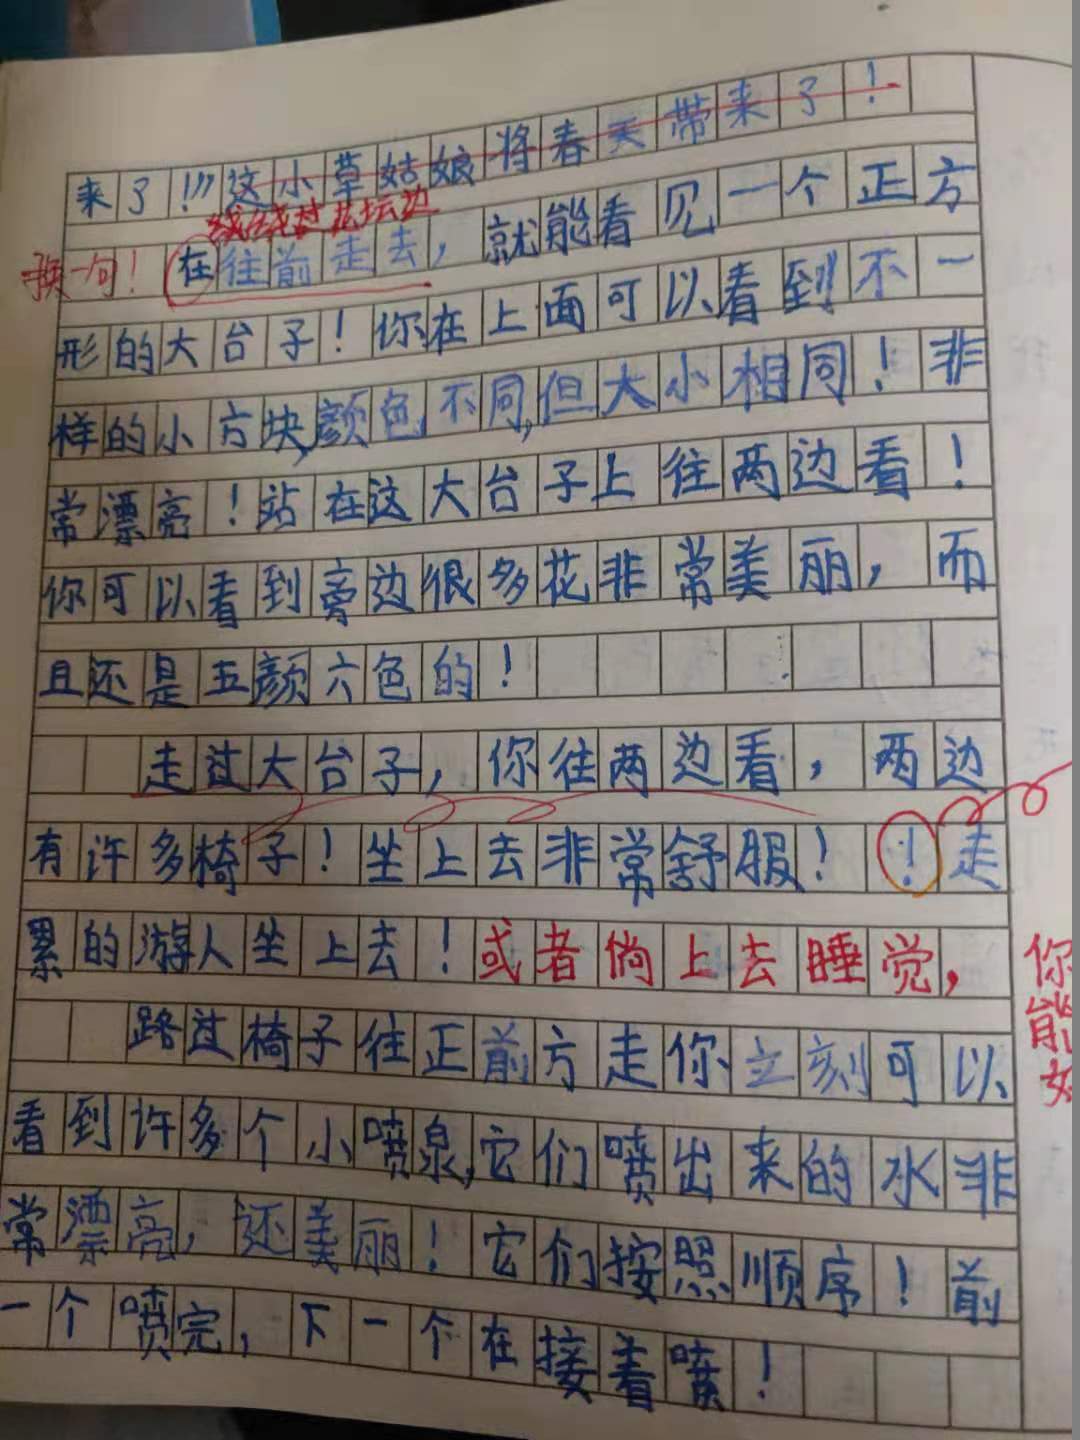 来了!!!这小草姑娘将春天带来了!
绕过花坛边
换一句!
在往前走去,就能看见一个正方
形的大台子!你在上面可以看到不一
样的小方块,颜色不同,但大小相同!非
常漂亮!站在这大台子上往两边看!
你可以看到旁边很多花非常美丽,而
且还是五颜六色的!
走过大台子,你往两边看,两边
有许多椅子!坐上去非常舒服!!走
累的游人坐上去!或者倘上去睡觉,
你能
路过椅子往正前方走你立刻可以
看到许多个小喷泉,它们喷出来的水非
常漂亮,还美丽!它们按照顺序!前
一个喷完,下一个在接着喷!